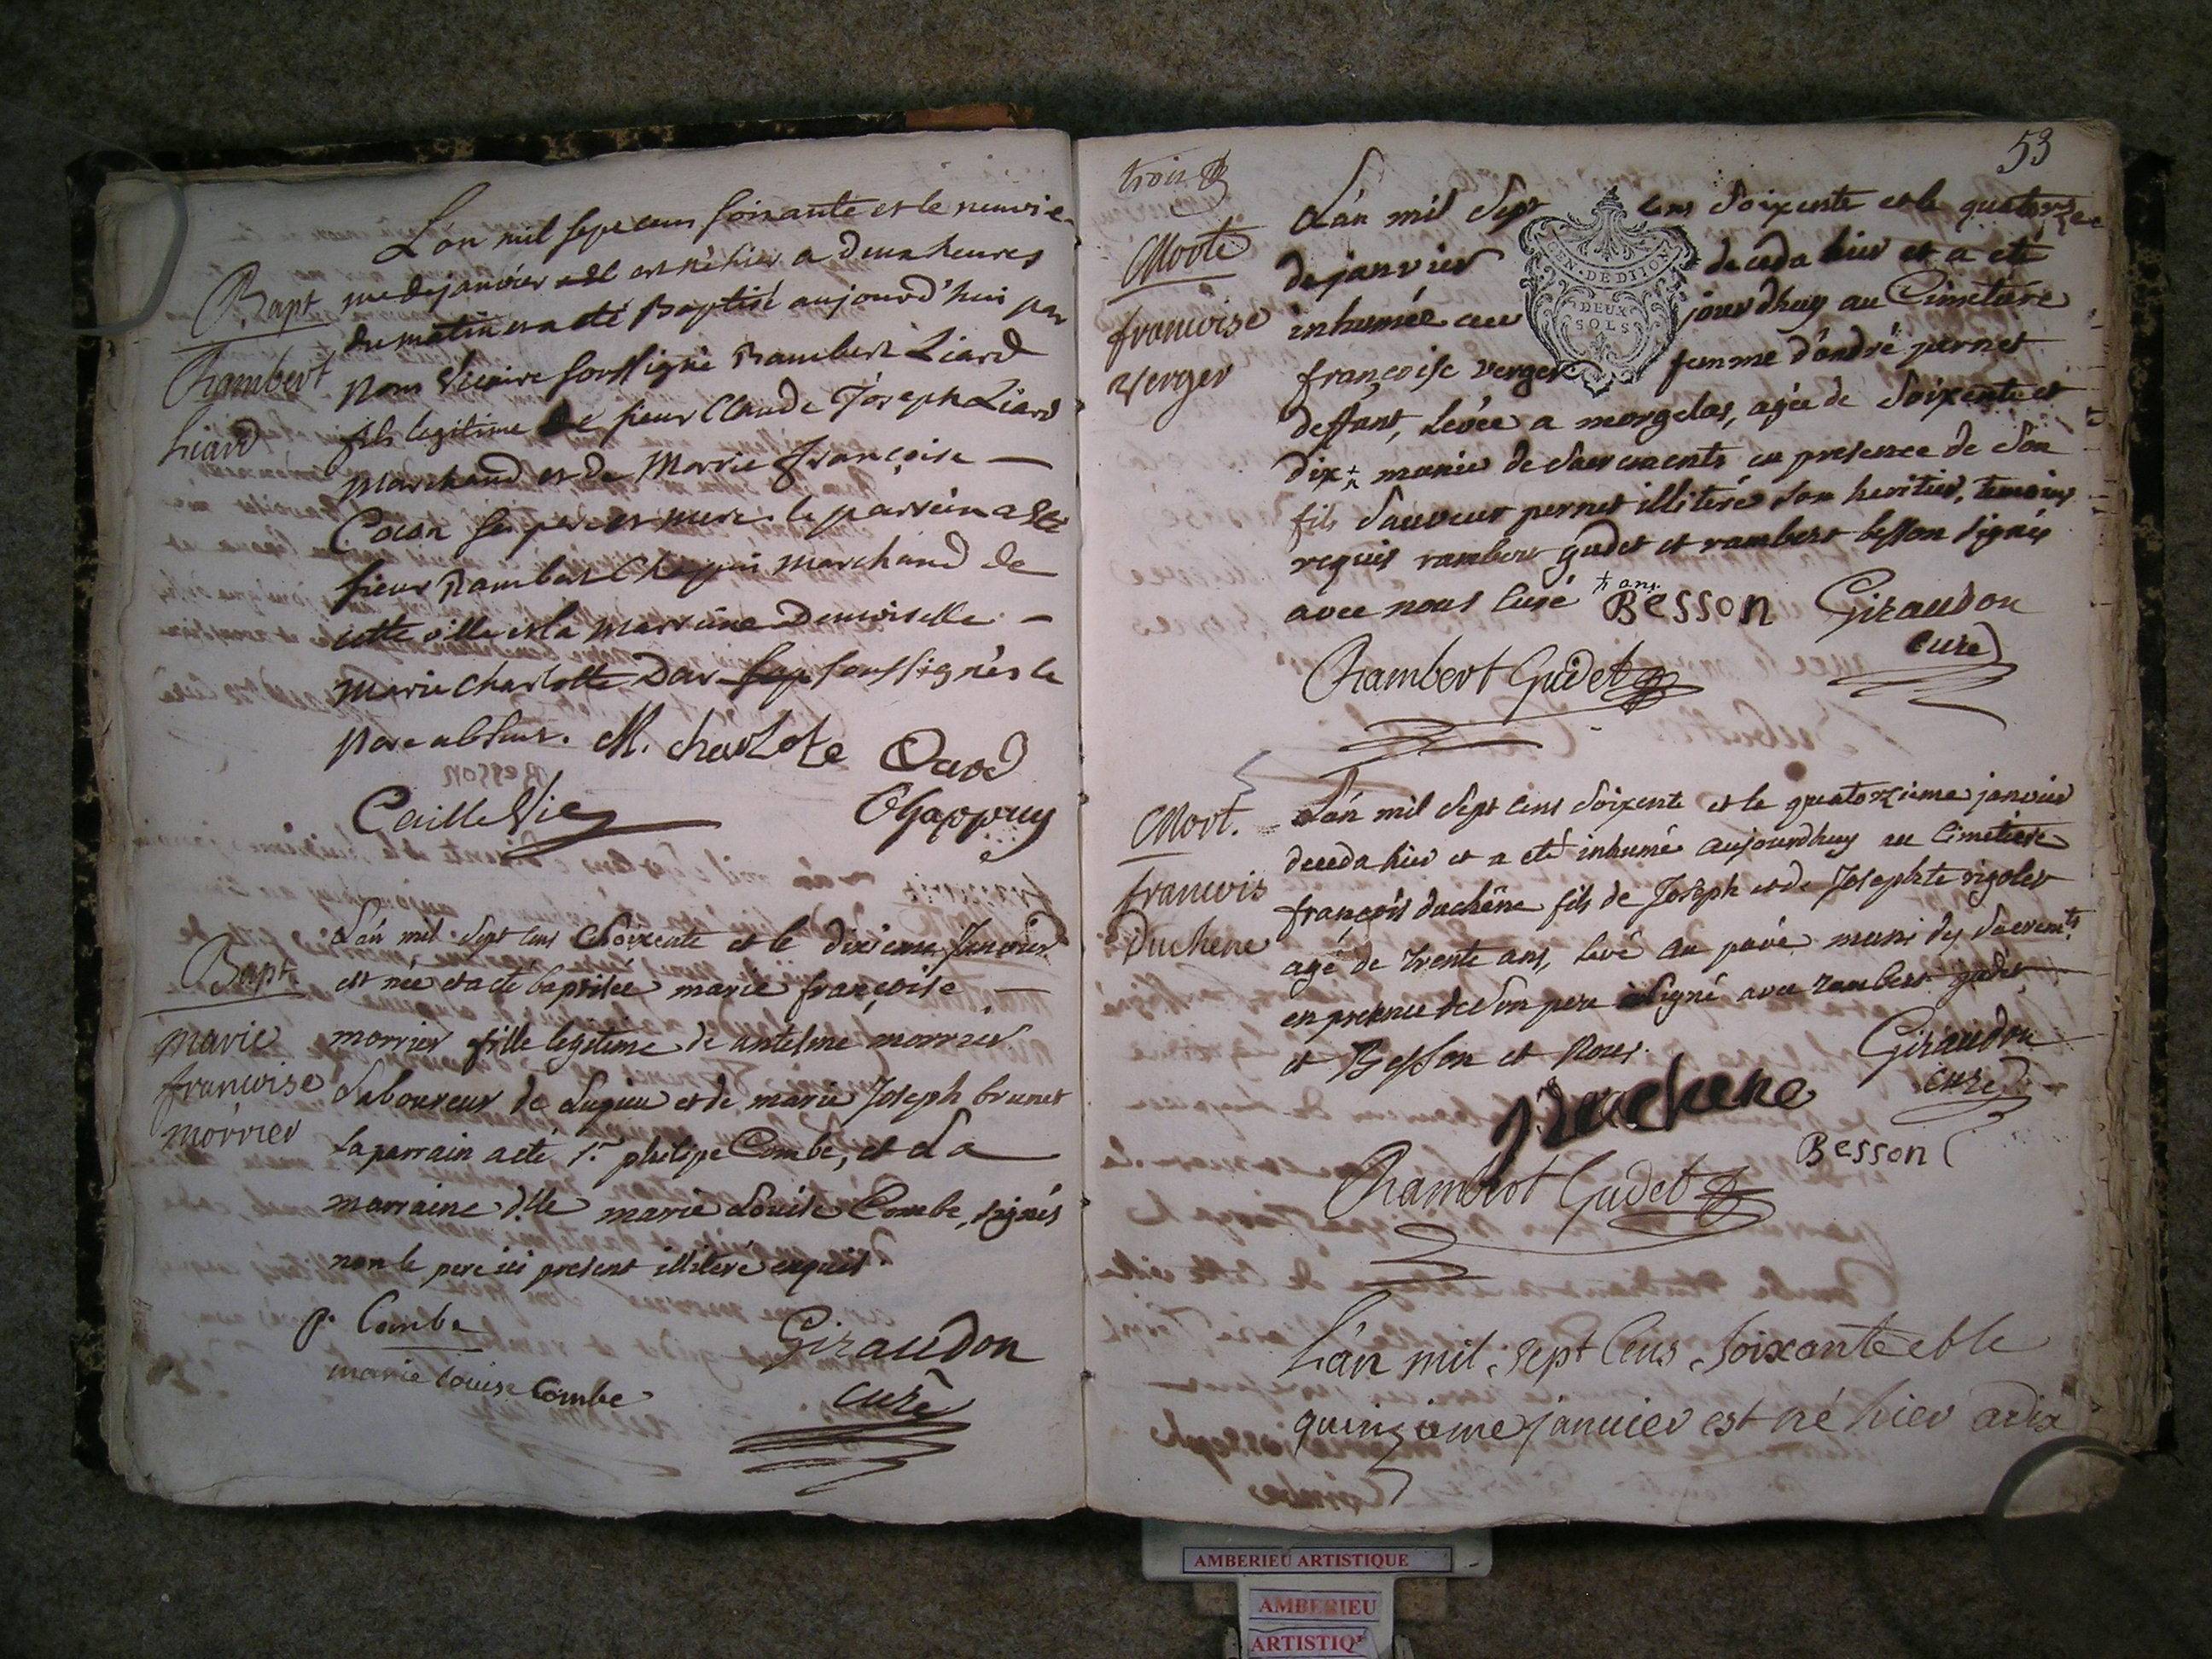 L'an mil sept cens soixante et le neuvie-
Bapt me de janvier est né hier a deux heures
du matin et a eté Baptisé aujourd'hui par
Rambert nous vicaire soussigné Rambert Liard
Liard fils legitime de sieur Claude Joseph Liard
marchand et de Marie Françoise —
Cocon ses pere et mere. le parrein a eté
sieur Rambert Chapuis marchand de
cette ville et la marreine Demoiselle —
marie charlotte Dar soussignés le
pere absent. M. charlote Dard
Caille Vic Chappuy
L'an mil sept cens soixente et le dixieme Janvier
Bapt est née et a eté baptisée marie françoise —
marie morrier fille legitime de antelme morrier
francoise Laboureur de Luysieu et de marie Joseph brunet
morrier le parrain a eté Sr philipe Combe, et La
marraine dlle marie Louise Combe, signés
non le pere ici present illiteré enquis
p. Combe Giraudon
marie louise Combe curé
53
trois
L'an mil Sept cens Soixente et le quatorze
Morte de janvier deceda hier et a eté
francoise inhumée au jourdhuy au Cimetiere
verger françoise verger femme d'andré pernet
GEN. DE DIJON
DEUX
SOLS
deffunt, Levée a morgelas, agée de Soixente et
dix + munie de Sacrements en presence de Son
fils Sauveur pernet illiteré Son heritier, temoins
requis rambert gudet et rambert besson signés
avec nous Curé + ans. Besson Giraudon
Rambert Gudet curé
Mort. L'an mil Sept cens Soixente et le quatorzieme janvier
deceda hier et a eté inhumé aujourdhuy au Cimetiere
francois françois duchêne fils de Joseph et de Josephte rigolet
Duchene agé de trente ans, levé au pavé muni des Sacremts
en presence de Son pere Signé avec rambert gudet
et Besson et Nous. Giraudon
J Duchene curé
Besson
Rambert Gudet
L'an mil sept Cens Soixante et le
quinzieme janvier est né hier a dix
AMBERIEU ARTISTIQUE
AMBERIEU
ARTISTIQUE